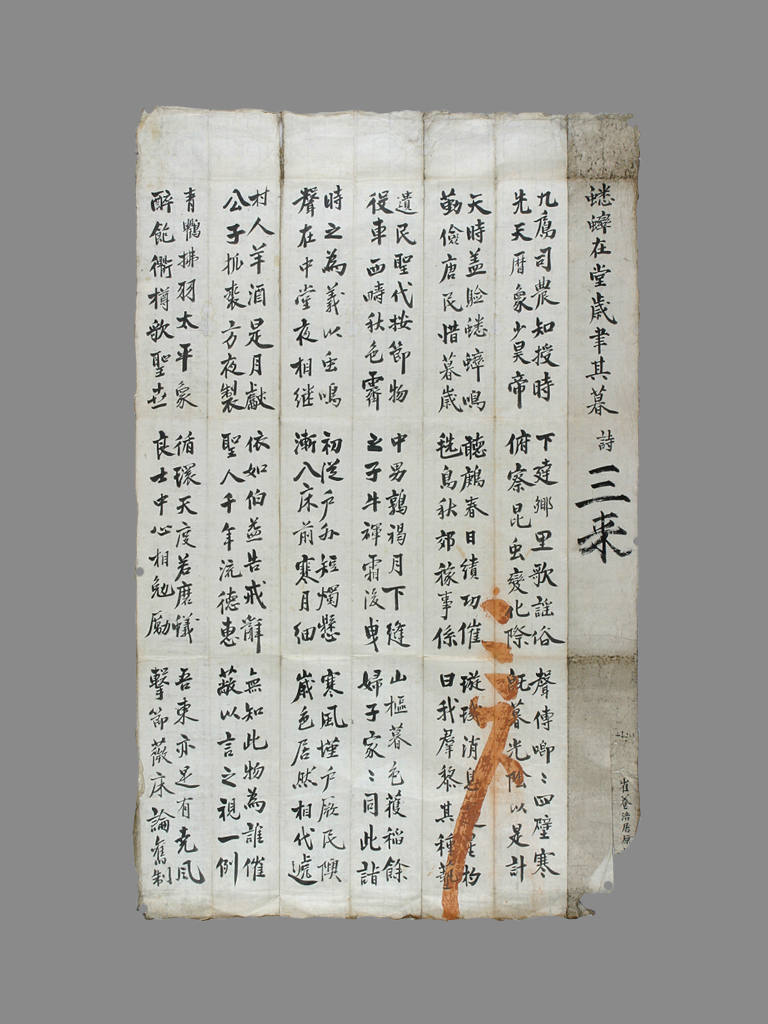 蟋蟀在堂歲聿其暮 詩
三来
九扈司農知授時
先天曆象少昊帝
下建鄉里歌謠俗
俯察昆虫變化際
聲傳喞〻四壁寒
旣暮光陰以是計
天時盖驗蟋蟀鳴
勤儉唐民惜暮歲
聽鷓春日績功催
毨鳥秋郊稼事係
璇璣消息
日我羣黎其種藝
遺民聖代按節物
役車西疇秋色霽
中男鶉褐月下縫
之子牛褌霜後曳
山樞暮色穫稻餘
婦子家〻同此詣
時之為義以虫鳴
聲在中堂夜相継
初從戶外短燭懸
漸入床前寒月細
寒風墐戶厥民隩
歲色居然相代遞
村人羊酒是月獻
公子狐裘方夜製
依如伯益告戒辭
聖人千年流德惠
無知此物為誰催
蔽以言之視一例
青鸎拂羽太平象
醉飽衢樽歌聖世
循環天度若磨蟻
良士中心相勉勵
吾東亦是有堯風
擊節薇床論舊制